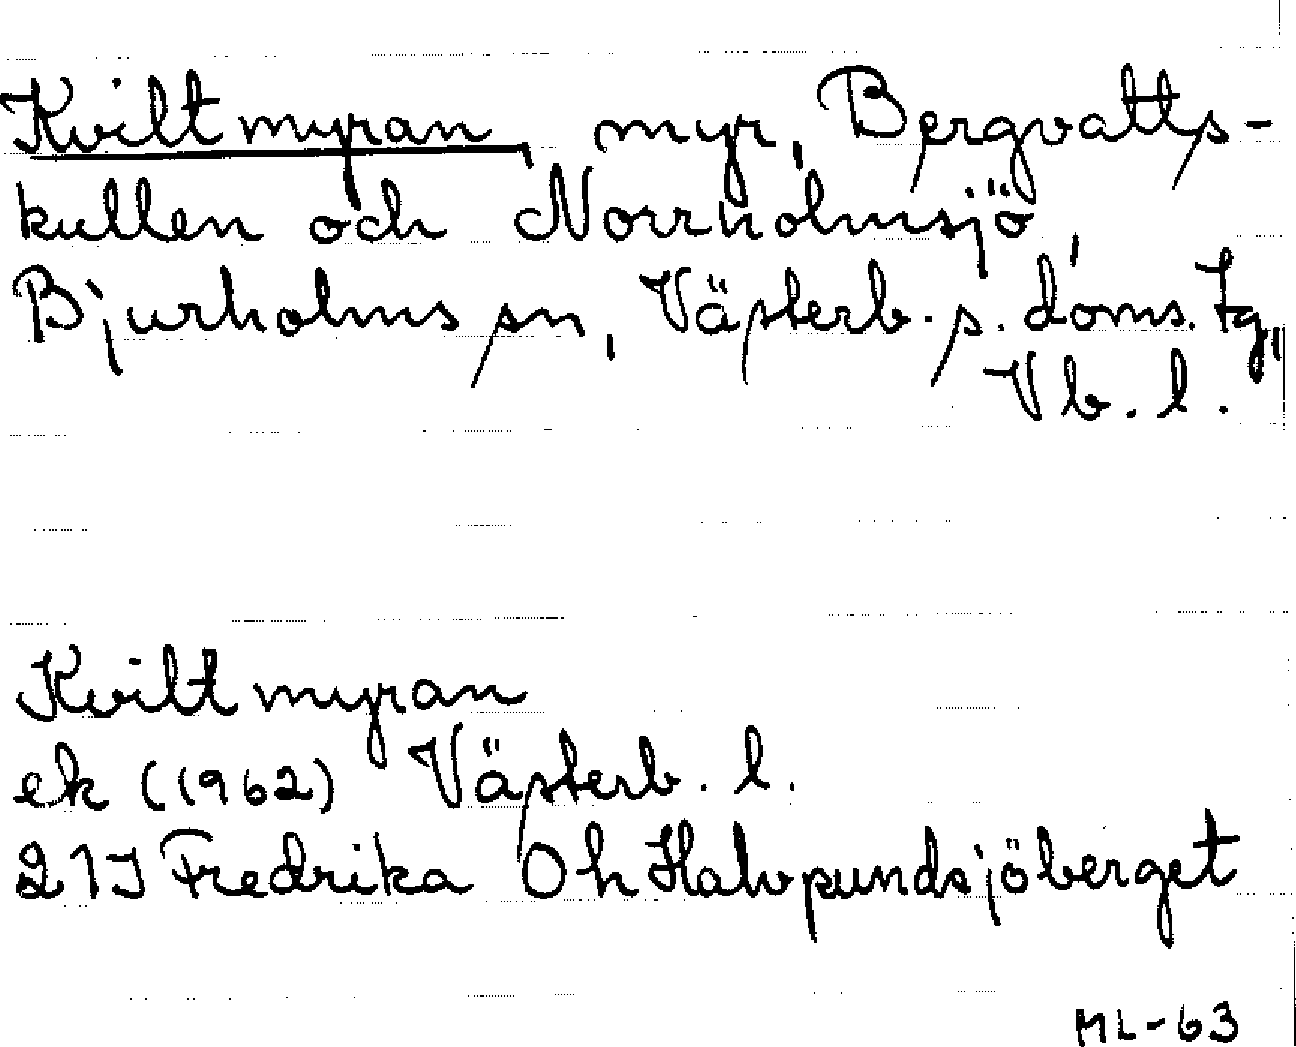 Kviltmyran, myr, Bergvatts-
kullen och Norrholmsjö,
Bjurholms sn, Västerb. s. doms. tg,
Vb. l.
Kviltmyran
ek (1962) Västerb. l.
21J Fredrika Oh Halvpundsjöberget
ML-63